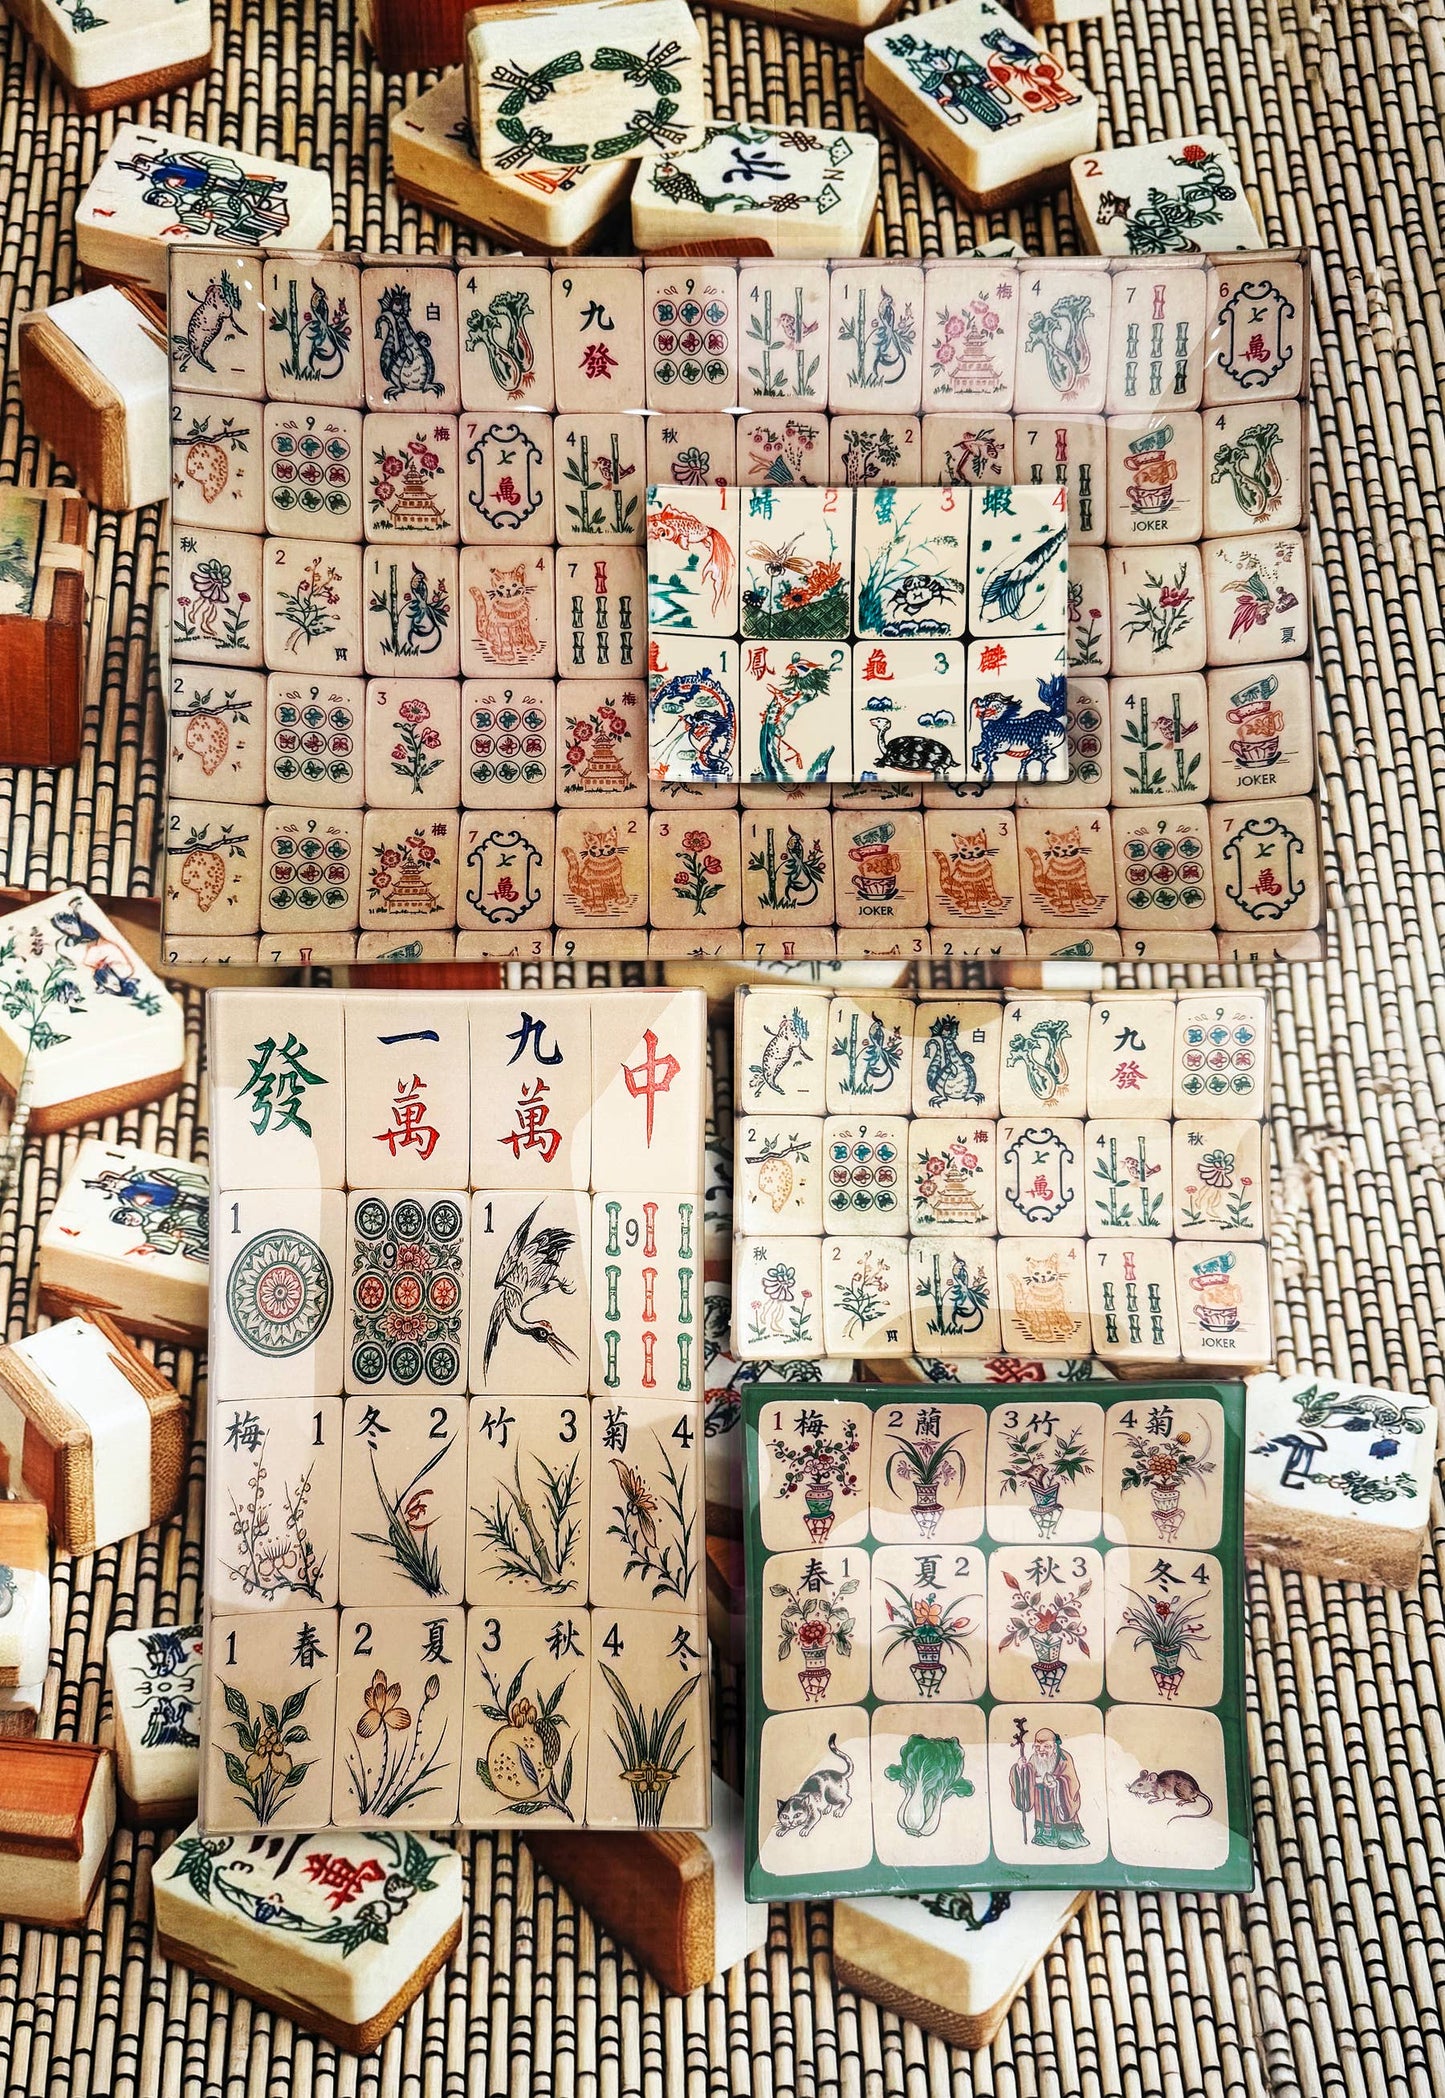 4
1
北
N
1
2
1 1 白 4 9 九 發 9 4 1 梅 4 7 6 萬
2 9 梅 7 萬 4 秋 2 7 JOKER 4
秋 2 1 4 7 1 夏
2 9 3 9 梅 4 JOKER
2 9 梅 7 萬 2 3 1 JOKER 3 4 9 7
3 9 7 3 2 9 1
1 蜻 2 蟹 3 蝦 4
龍 1 鳳 2 龜 3 麟 4
發 一 萬 九 萬 中
1 9 1 9
梅 1 冬 2 竹 3 菊 4
1 春 2 夏 3 秋 4 冬
1 白 4 9 九 發 9
2 9 梅 7 萬 4 秋
秋 2 1 4 7 JOKER
1 梅 2 蘭 3 竹 4 菊
春 1 夏 2 秋 3 冬 4
3 萬